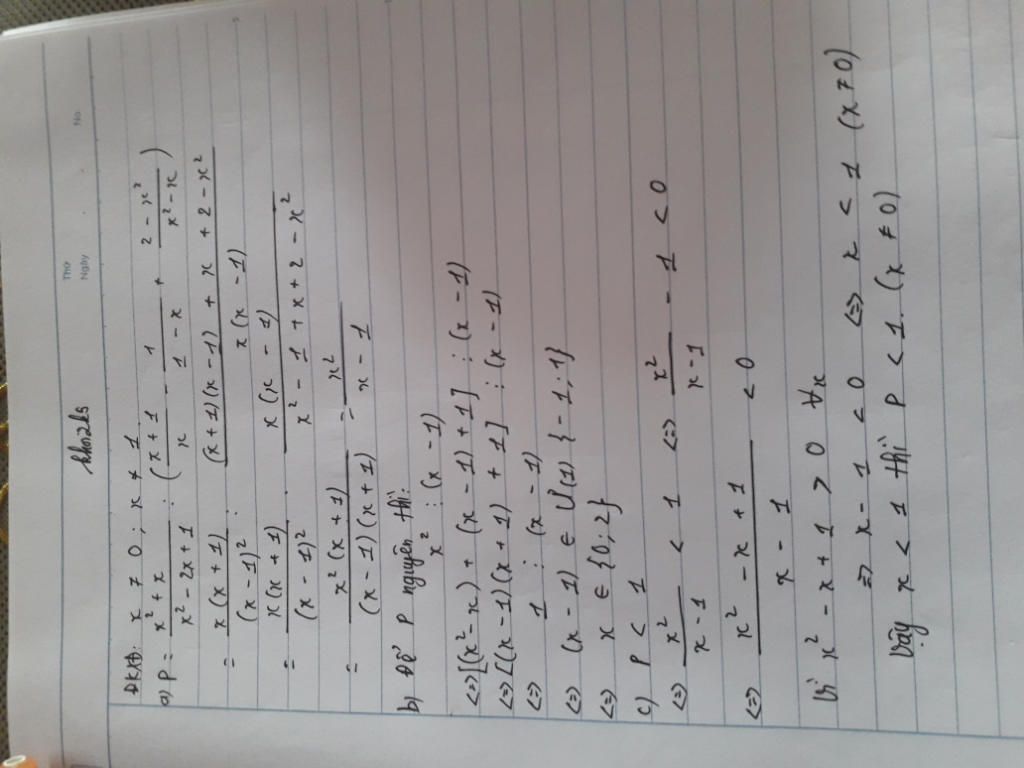 Thứ
Ngày No.
khon2ls
ĐKXĐ: x ≠ 0 ; x ≠ 1
a) P = (x² + x)/(x² - 2x + 1) : ((x + 1)/x - 1/(1 - x) + (2 - x²)/(x² - x))
= x(x + 1)/(x - 1)² : ((x + 1)(x - 1) + x + 2 - x²)/(x(x - 1))
= x(x + 1)/(x - 1)² . x(x - 1)/(x² - 1 + x + 2 - x²)
= x²(x + 1)/((x - 1)(x + 1)) = x²/(x - 1)
b) Để P nguyên thì:
x² ⋮ (x - 1)
<=> [(x² - x) + (x - 1) + 1] ⋮ (x - 1)
<=> [(x - 1)(x + 1) + 1] ⋮ (x - 1)
<=> 1 ⋮ (x - 1)
<=> (x - 1) ∈ Ư(1) {-1; 1}
<=> x ∈ {0; 2}
c) P < 1
<=> x²/(x - 1) < 1 <=> x²/(x - 1) - 1 < 0
<=> (x² - x + 1)/(x - 1) < 0
Vì x² - x + 1 > 0 ∀x
=> x - 1 < 0 <=> x < 1 (x ≠ 0)
Vậy x < 1 thì P < 1. (x ≠ 0)